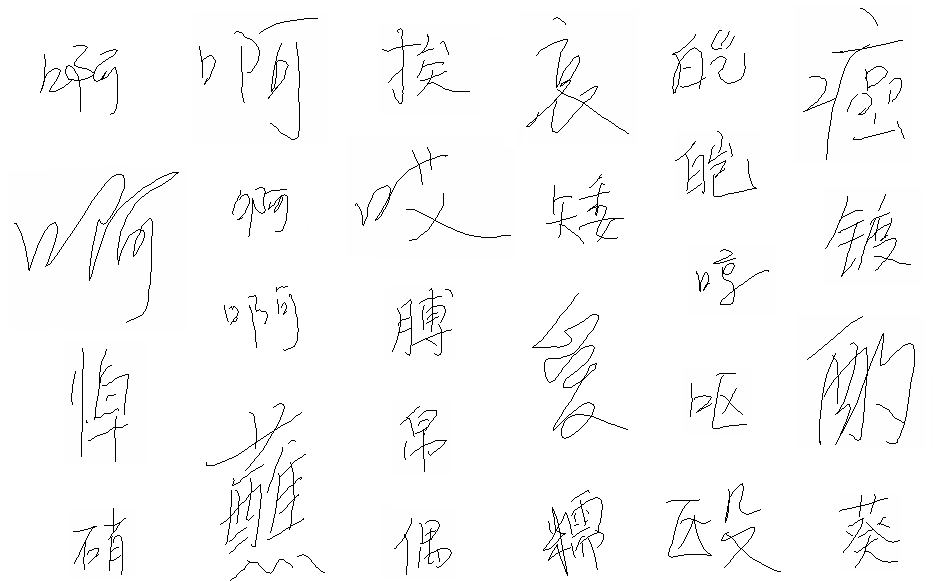 啊 啊 挨 哀 皑 癌
啊 啊 哎 矮 皑 镀
啊 膊 爱 哼 酌
悼 蘸 帛 呕
硝 偶 糯 殴 葵